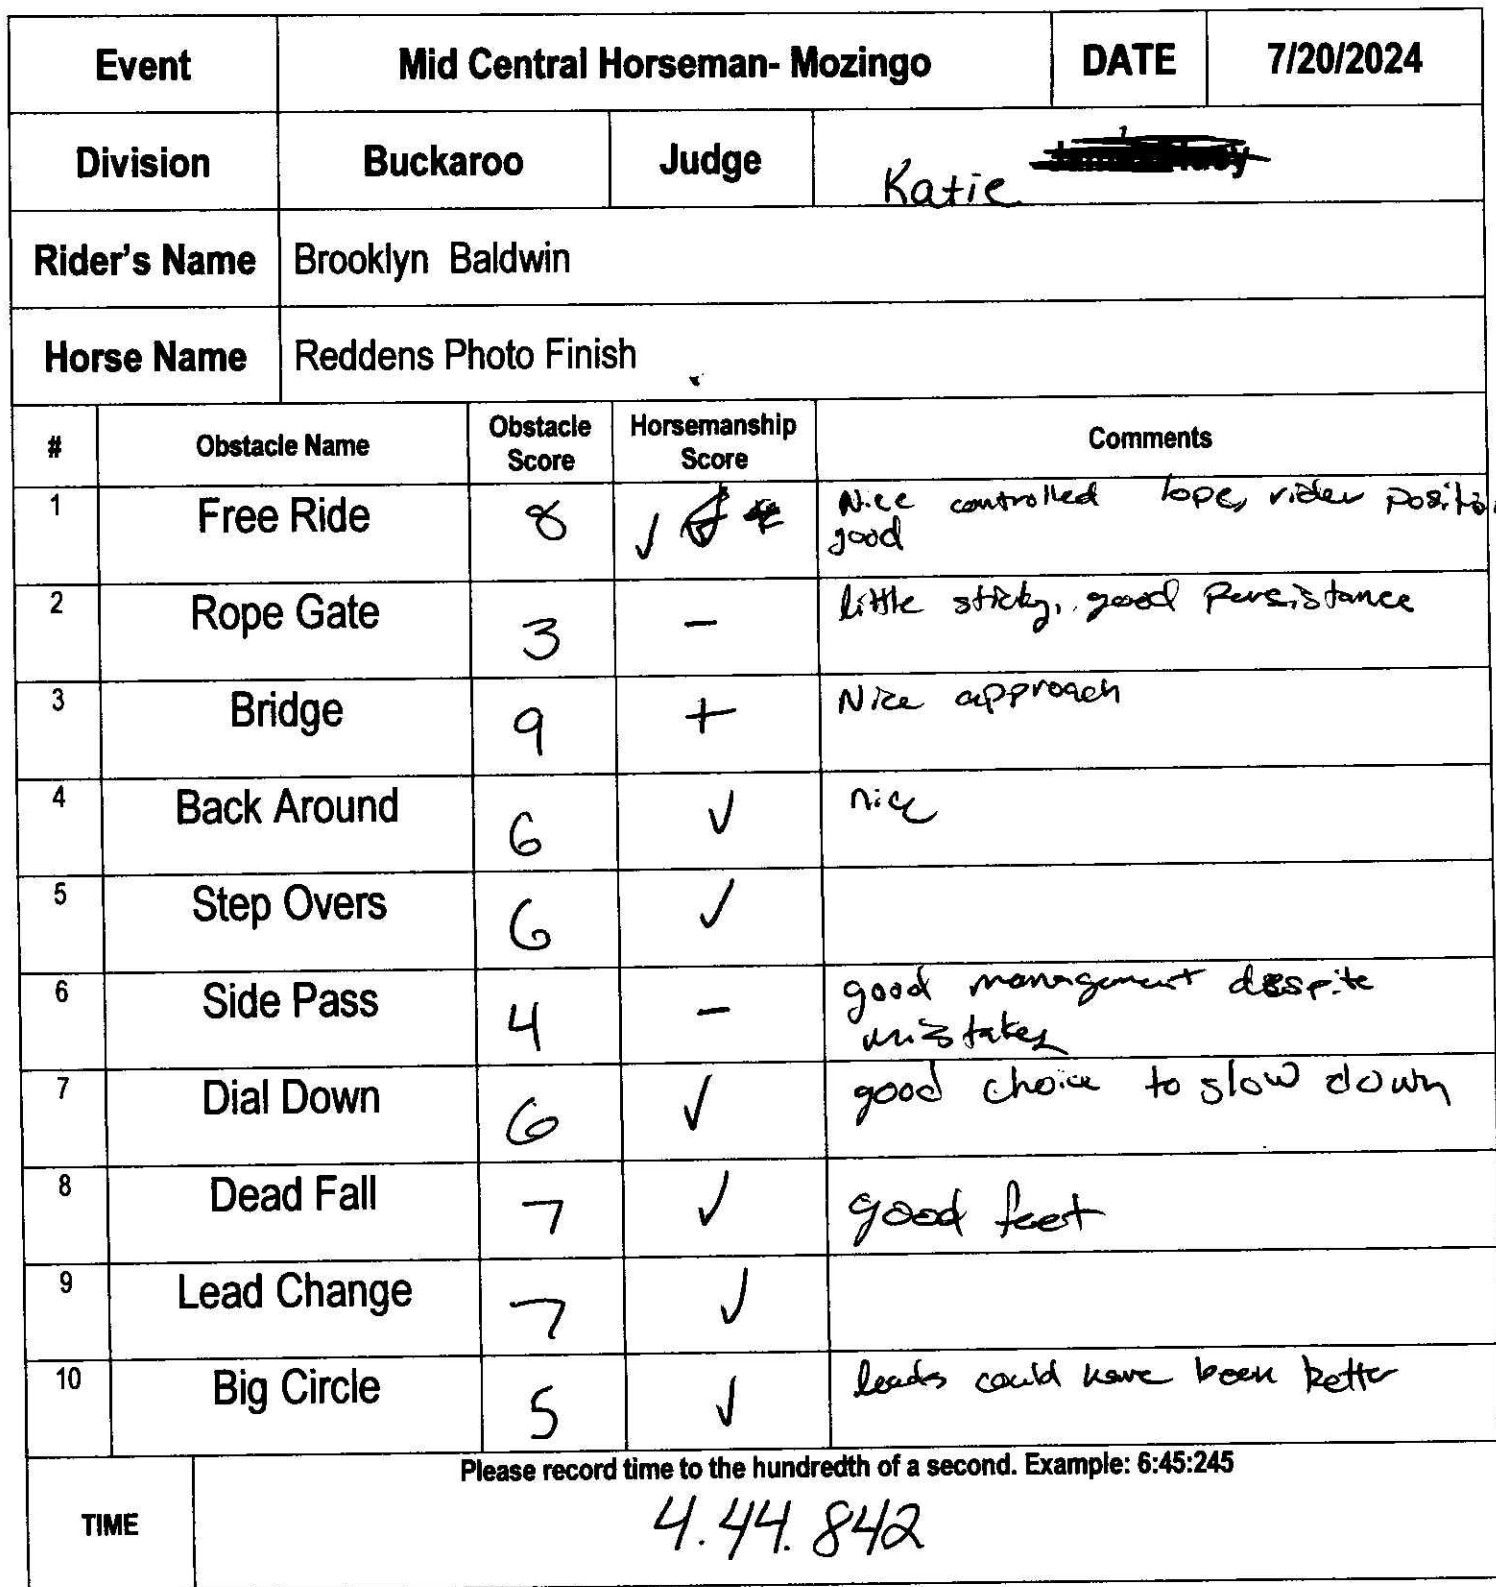 Event Mid Central Horseman- Mozingo DATE 7/20/2024
Division Buckaroo Judge Katie
Rider's Name Brooklyn Baldwin
Horse Name Reddens Photo Finish
# Obstacle Name Obstacle Score Horsemanship Score Comments
1 Free Ride 8 ✓ Nice controlled lope, rider positio
good
2 Rope Gate 3 – little sticky, good persistance
3 Bridge 9 + Nice approach
4 Back Around 6 ✓ nice
5 Step Overs 6 ✓
6 Side Pass 4 – good management despite
mistakes
7 Dial Down 6 ✓ good choice to slow down
8 Dead Fall 7 ✓ good feet
9 Lead Change 7 ✓
10 Big Circle 5 ✓ leads could have been better
Please record time to the hundredth of a second. Example: 6:45:245
TIME 4.44.842